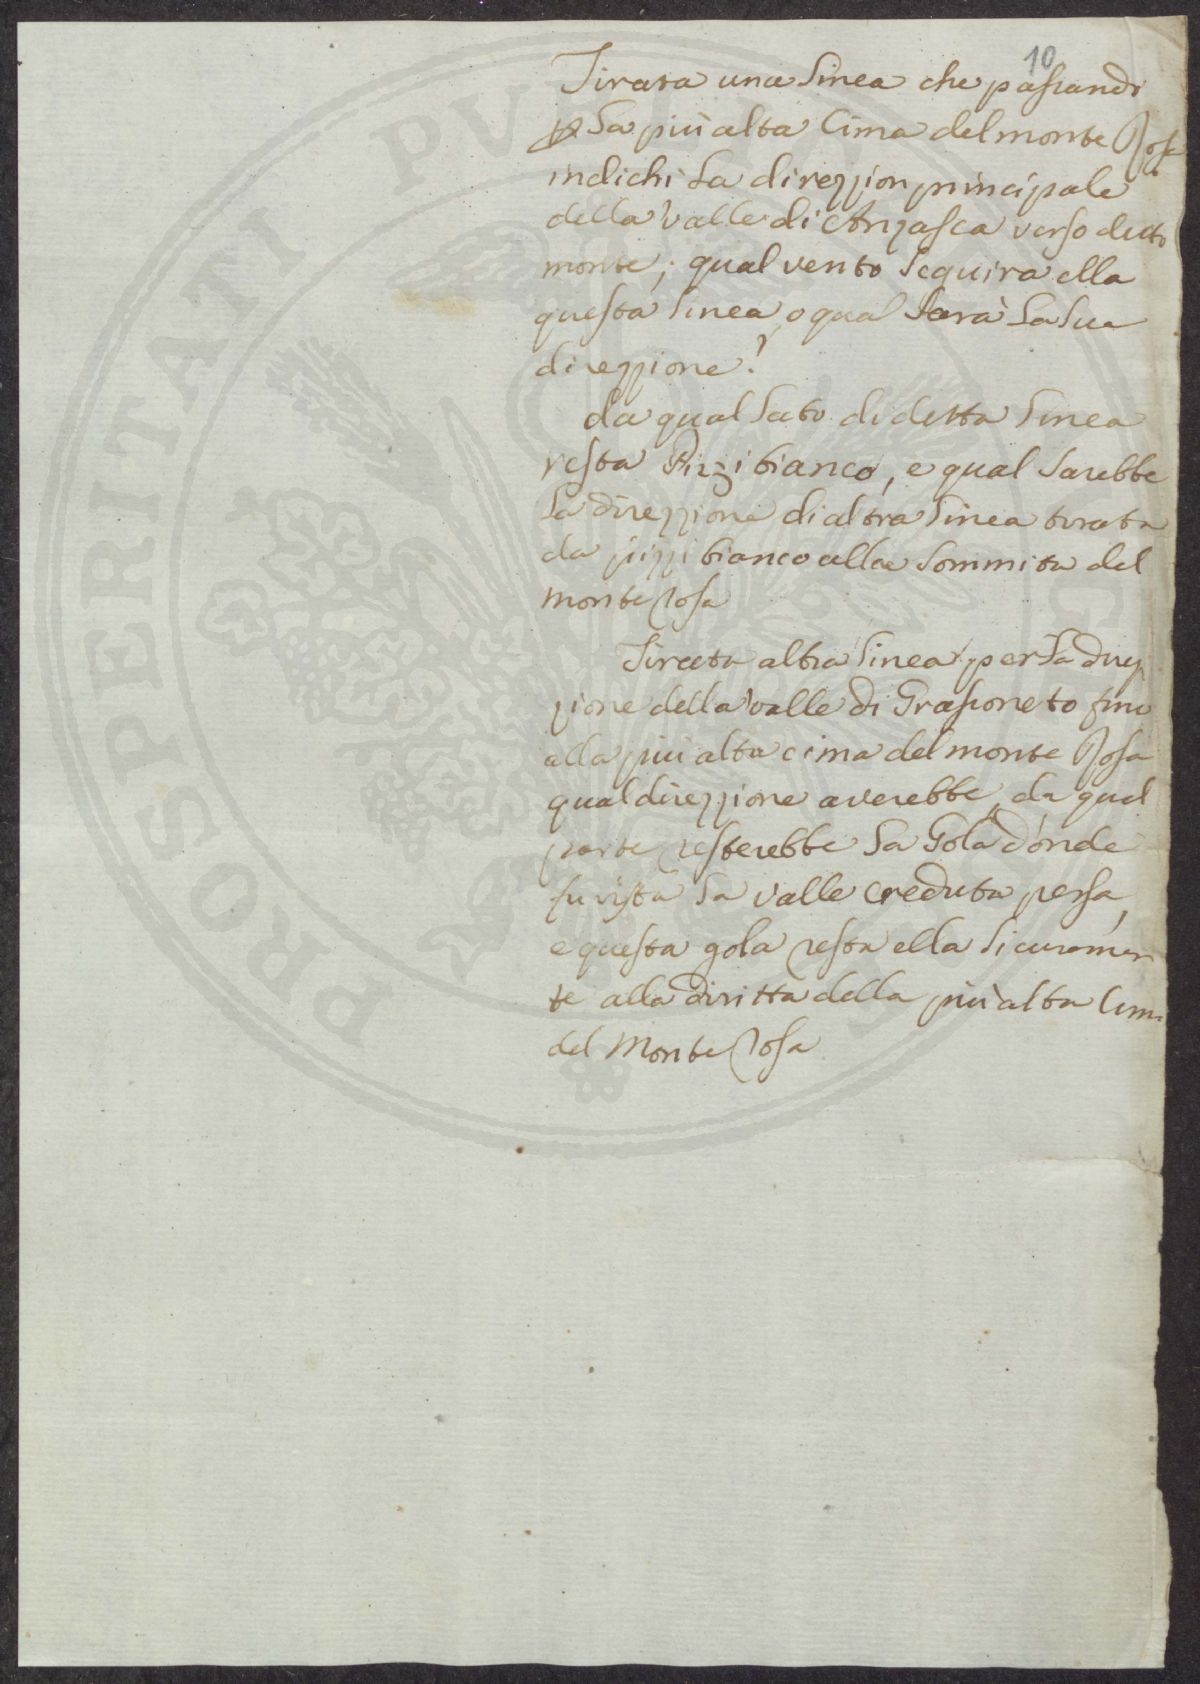 10
Tirata una linea che passando
per la più alta Cima del monte Rosa
indichi la direzzion principale
della valle di Anzasca verso detto
monte; qual vento seguira ella
questa linea, o qual sarà la sua
direzzione?
da qual lato di detta linea
resta Pizzi bianco, e qual sarebbe
la direzzione di altra linea tirata
da pizzi bianco alla sommita del
monte rosa
Tirata altra linea per la direz
zione della valle di Grassoneto fino
alla più alta cima del monte Rosa
qual direzzione averebbe, da qual
parte resterebbe la Gola donde
fu vista la valle creduta persa,
e questa gola resta ella sicuramen
te alla diritta della più alta Cima
del Monte rosa
PROSPERITATI PUBLICAE